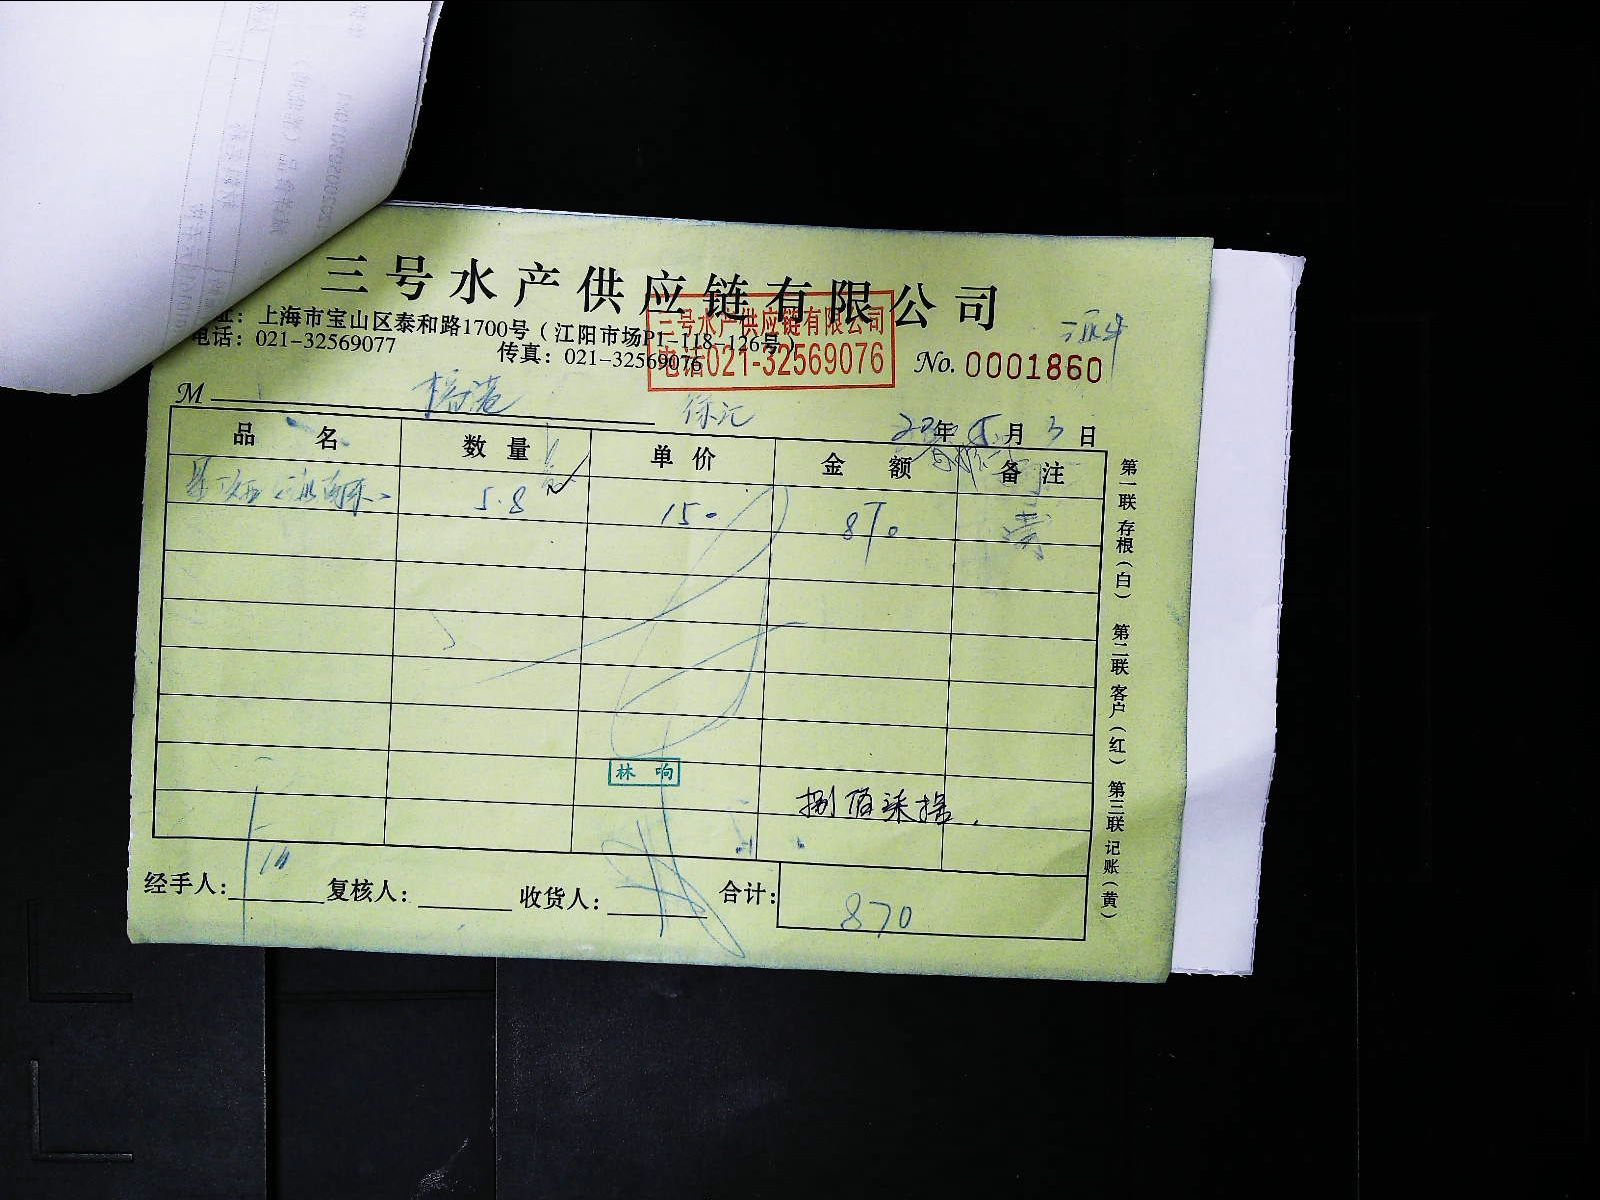 三号水产供应链有限公司
址：上海市宝山区泰和路1700号（江阳市场P1-118-126号）
电话：021-32569077 传真：021-32569076
三号水产供应链有限公司
电话021-32569076
No. 0001860
M 徐汇
年 5 月 3 日
品名 数量 单价 金额 备注
5.8 150 870
林响
捌佰柒拾
经手人： 复核人： 收货人： 合计： 870
第一联 存根（白） 第二联 客户（红） 第三联 记账（黄）